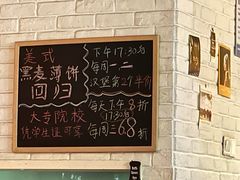 美式
黑麦薄饼
回归
大寺院校
凭学生证可享
下午17:30后
每周一.二
汉堡第2个半价
每天下午8折
17:30后
每周三6.8折